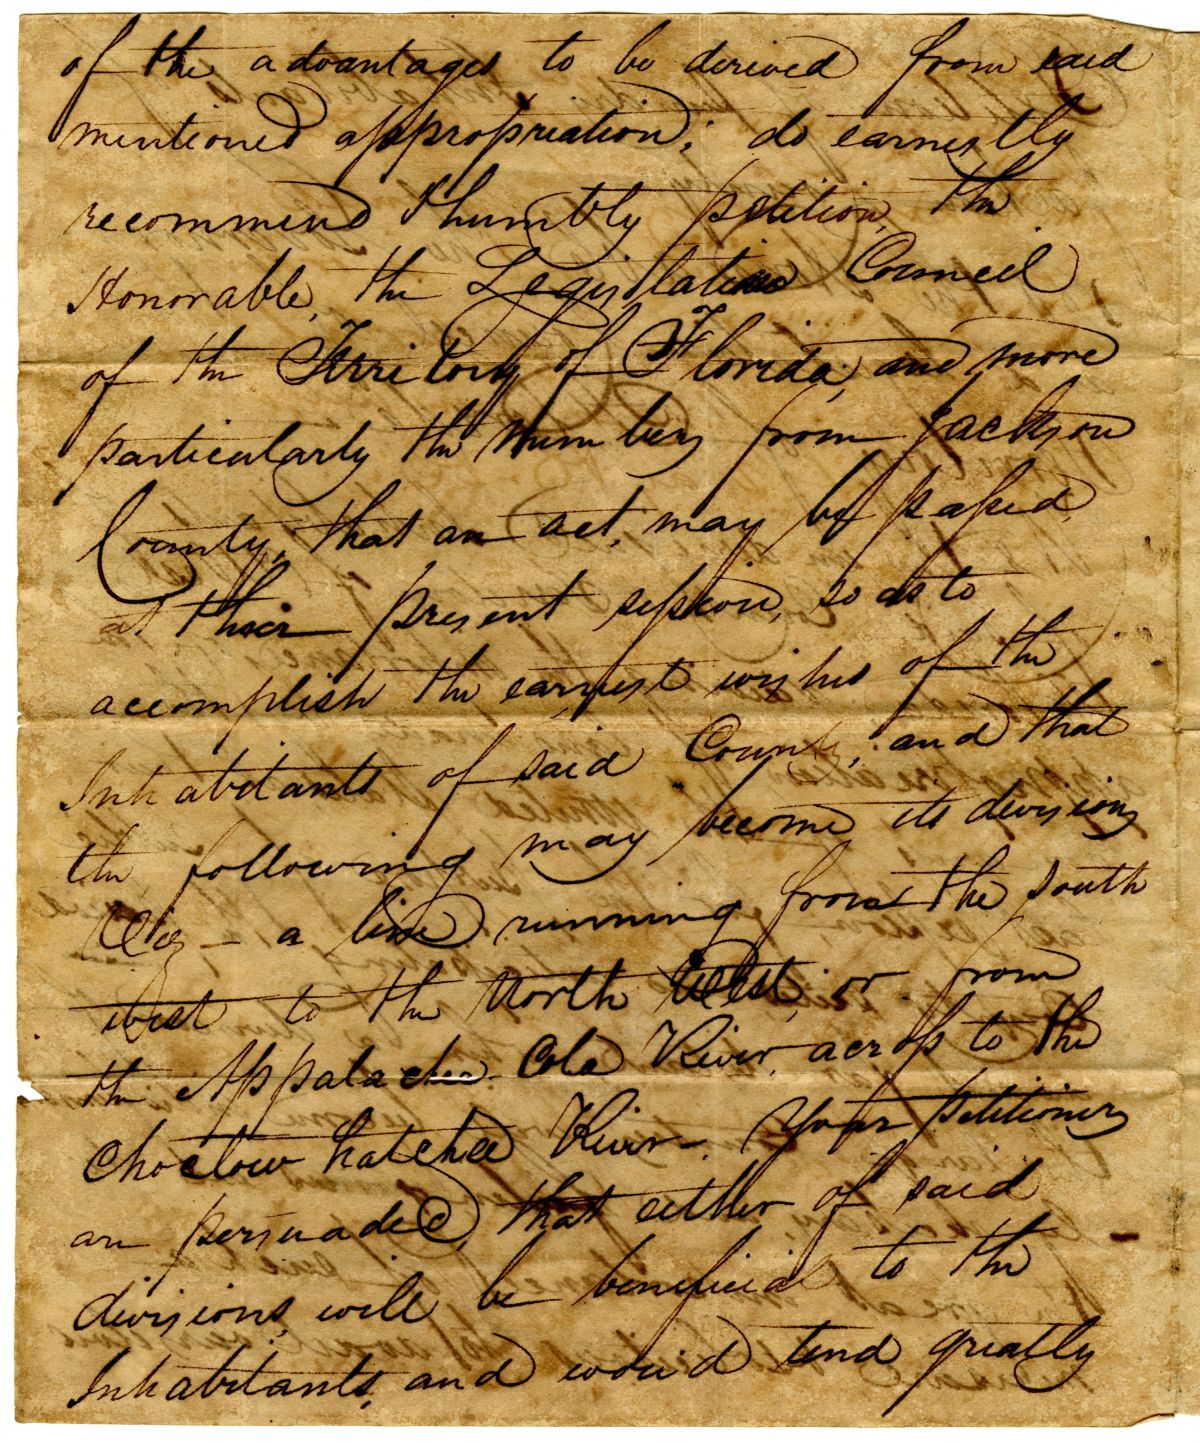 of the advantages to be derived from said
mentioned appropriation; do earnestly
recommend & humbly petition, the
Honorable, the Legislative Council
of the Territory of Florida, and more
particularly the members from Jackson
County, that an act, may be passed,
at their present session, so as to
accomplish the earnest wishes of the
Inhabitants of said County, and that
the following may become its divisions
Viz – a line running from the south
west to the North West, or from
the Appalache Cola River, across to the
Choctow hatchee River –. Your petitioners
are persuaded, that either of said
divisions, will be beneficial to the
Inhabitants, and would tend greatly